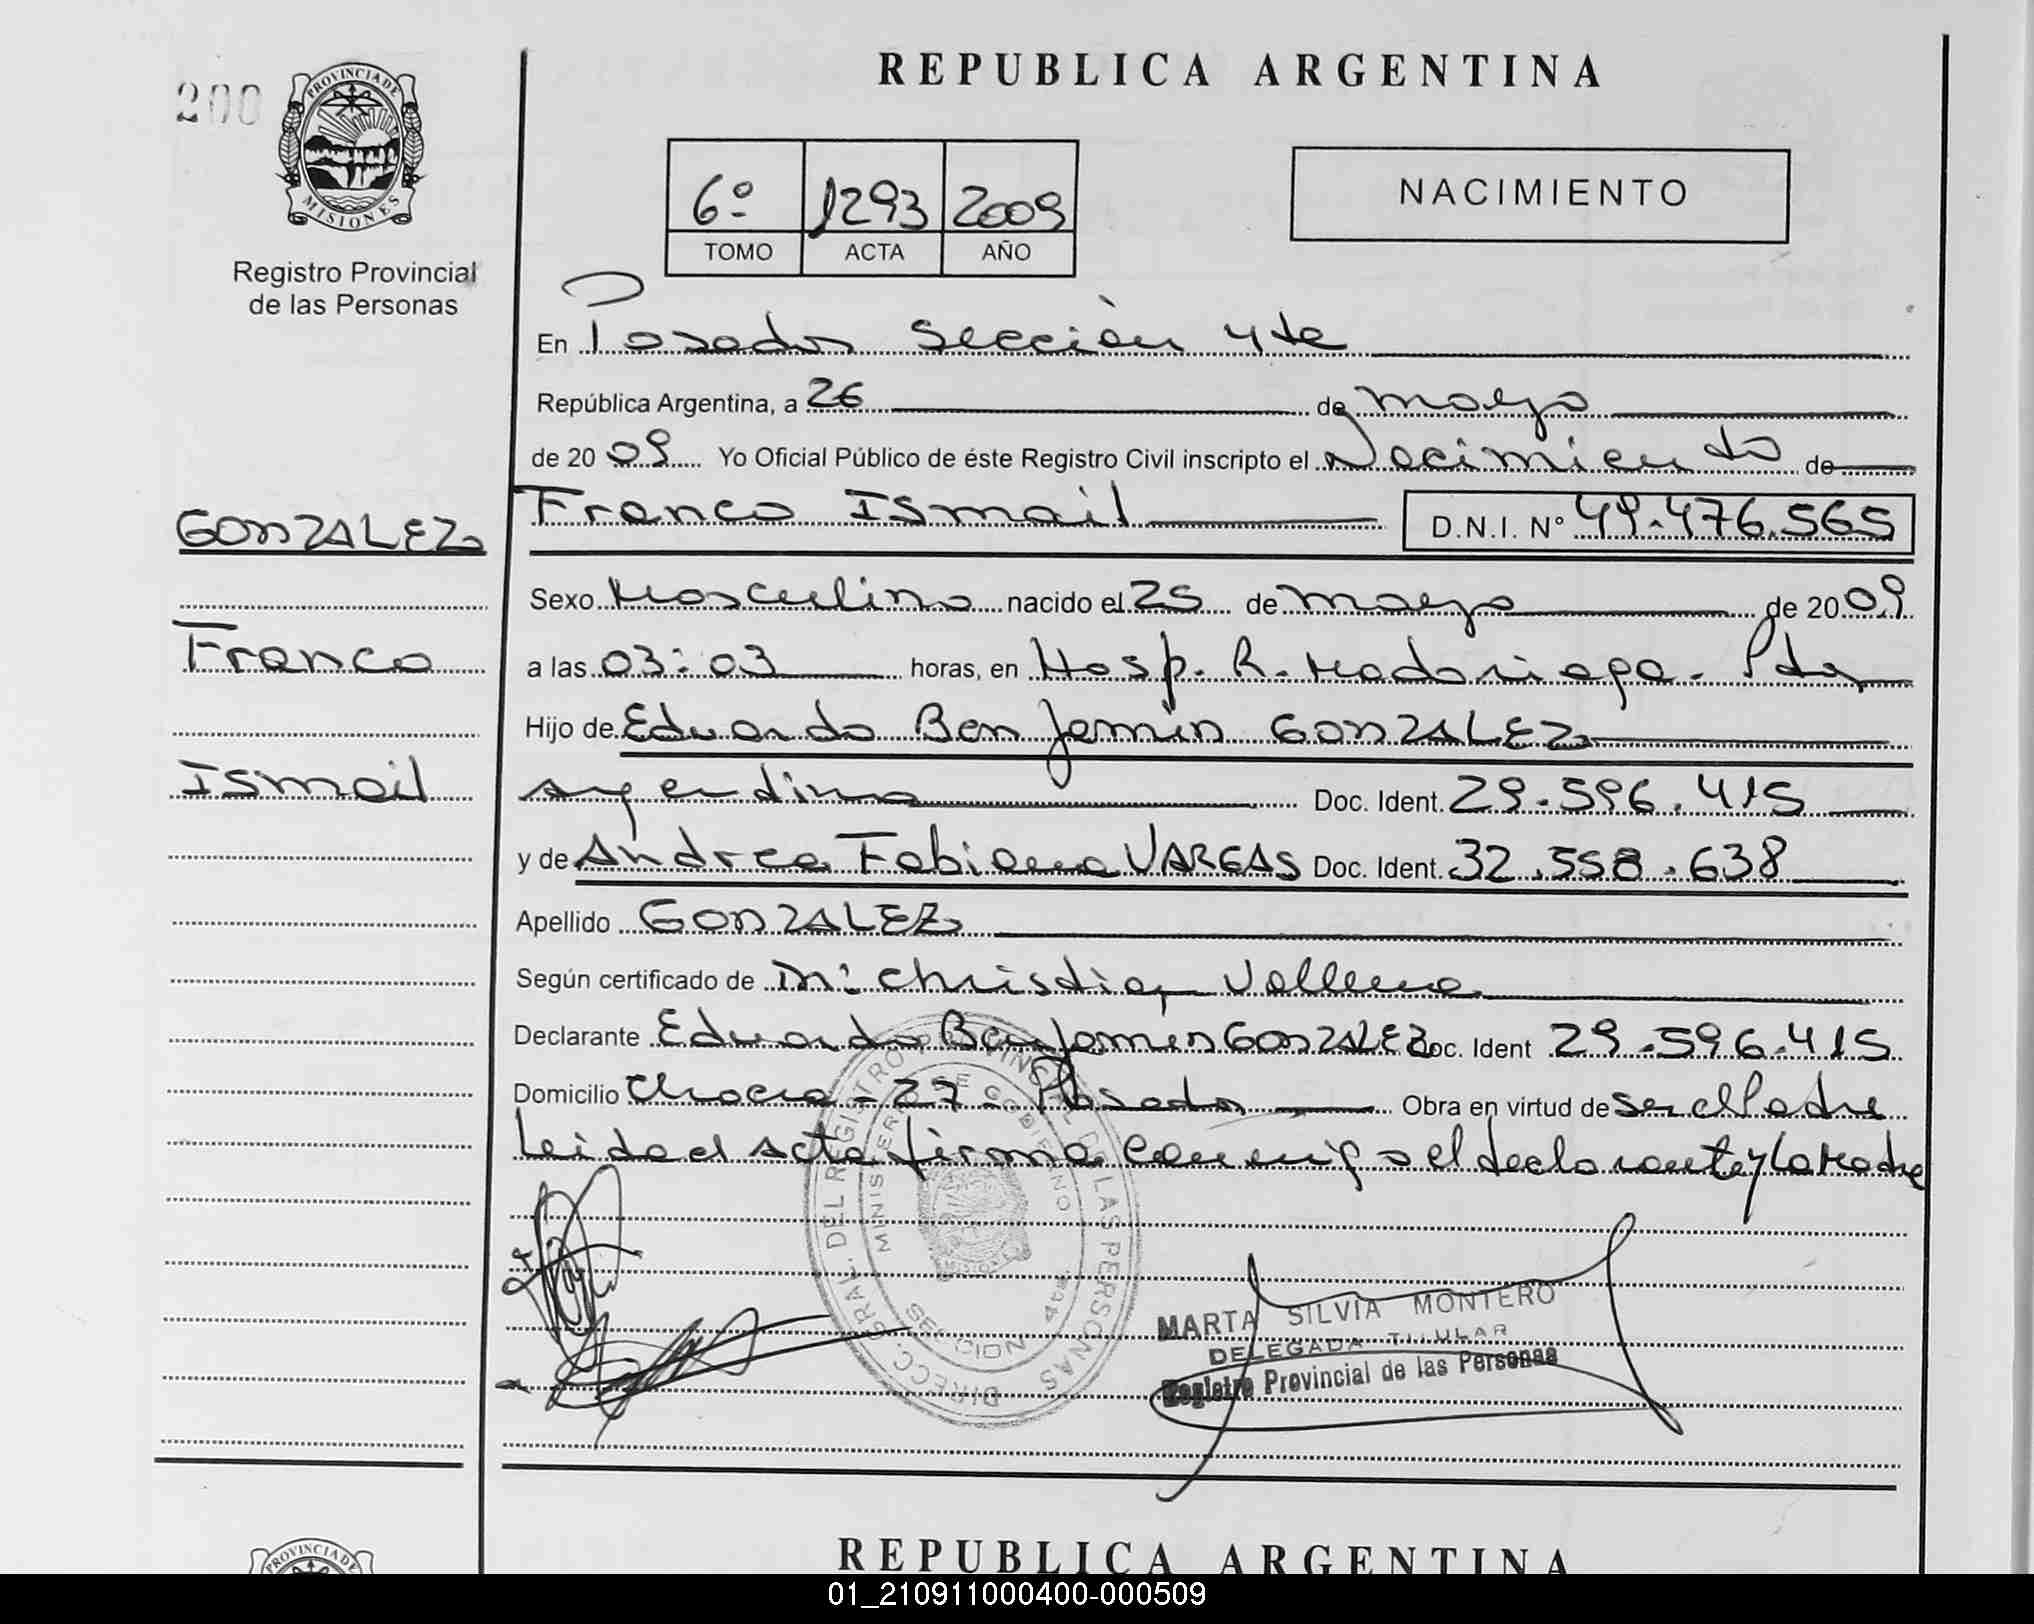 200
PROVINCIA DE
MISIONES
Registro Provincial
de las Personas
REPUBLICA ARGENTINA
6º 1293 2009
TOMO ACTA AÑO
NACIMIENTO
En Posadas Sección 4ta
República Argentina, a 26 de mayo
de 20 09 Yo Oficial Público de éste Registro Civil inscripto el Nacimiento de
GONZALEZ
Franco
Ismail
Franco Ismail D.N.I. Nº 49.476.565
Sexo Masculino nacido el 25 de mayo de 20 09
a las 03:03 horas, en Hosp. R. Madariaga. Pdas
Hijo de Eduardo Benjamin GONZALEZ
argentino Doc. Ident. 29.596.415
y de Andrea Fabiana VARGAS Doc. Ident. 32.558.638
Apellido GONZALEZ
Según certificado de Christian
Declarante Eduardo Benjamin GONZALEZ Doc. Ident 29.596.415
Domicilio 27 - Posadas Obra en virtud de ser el Padre
Leida el Acta firma conmigo el declarante y la Madre
DIRECC. GRAL. DEL REGISTRO PROVINCIAL DE LAS PERSONAS
MINISTERIO DE GOBIERNO
MISIONES
SECCION 4ta.
MARTA SILVIA MONTERO
DELEGADA TITULAR
Registro Provincial de las Personas
PROVINCIA DE
REPUBLICA ARGENTINA
01_210911000400-000509